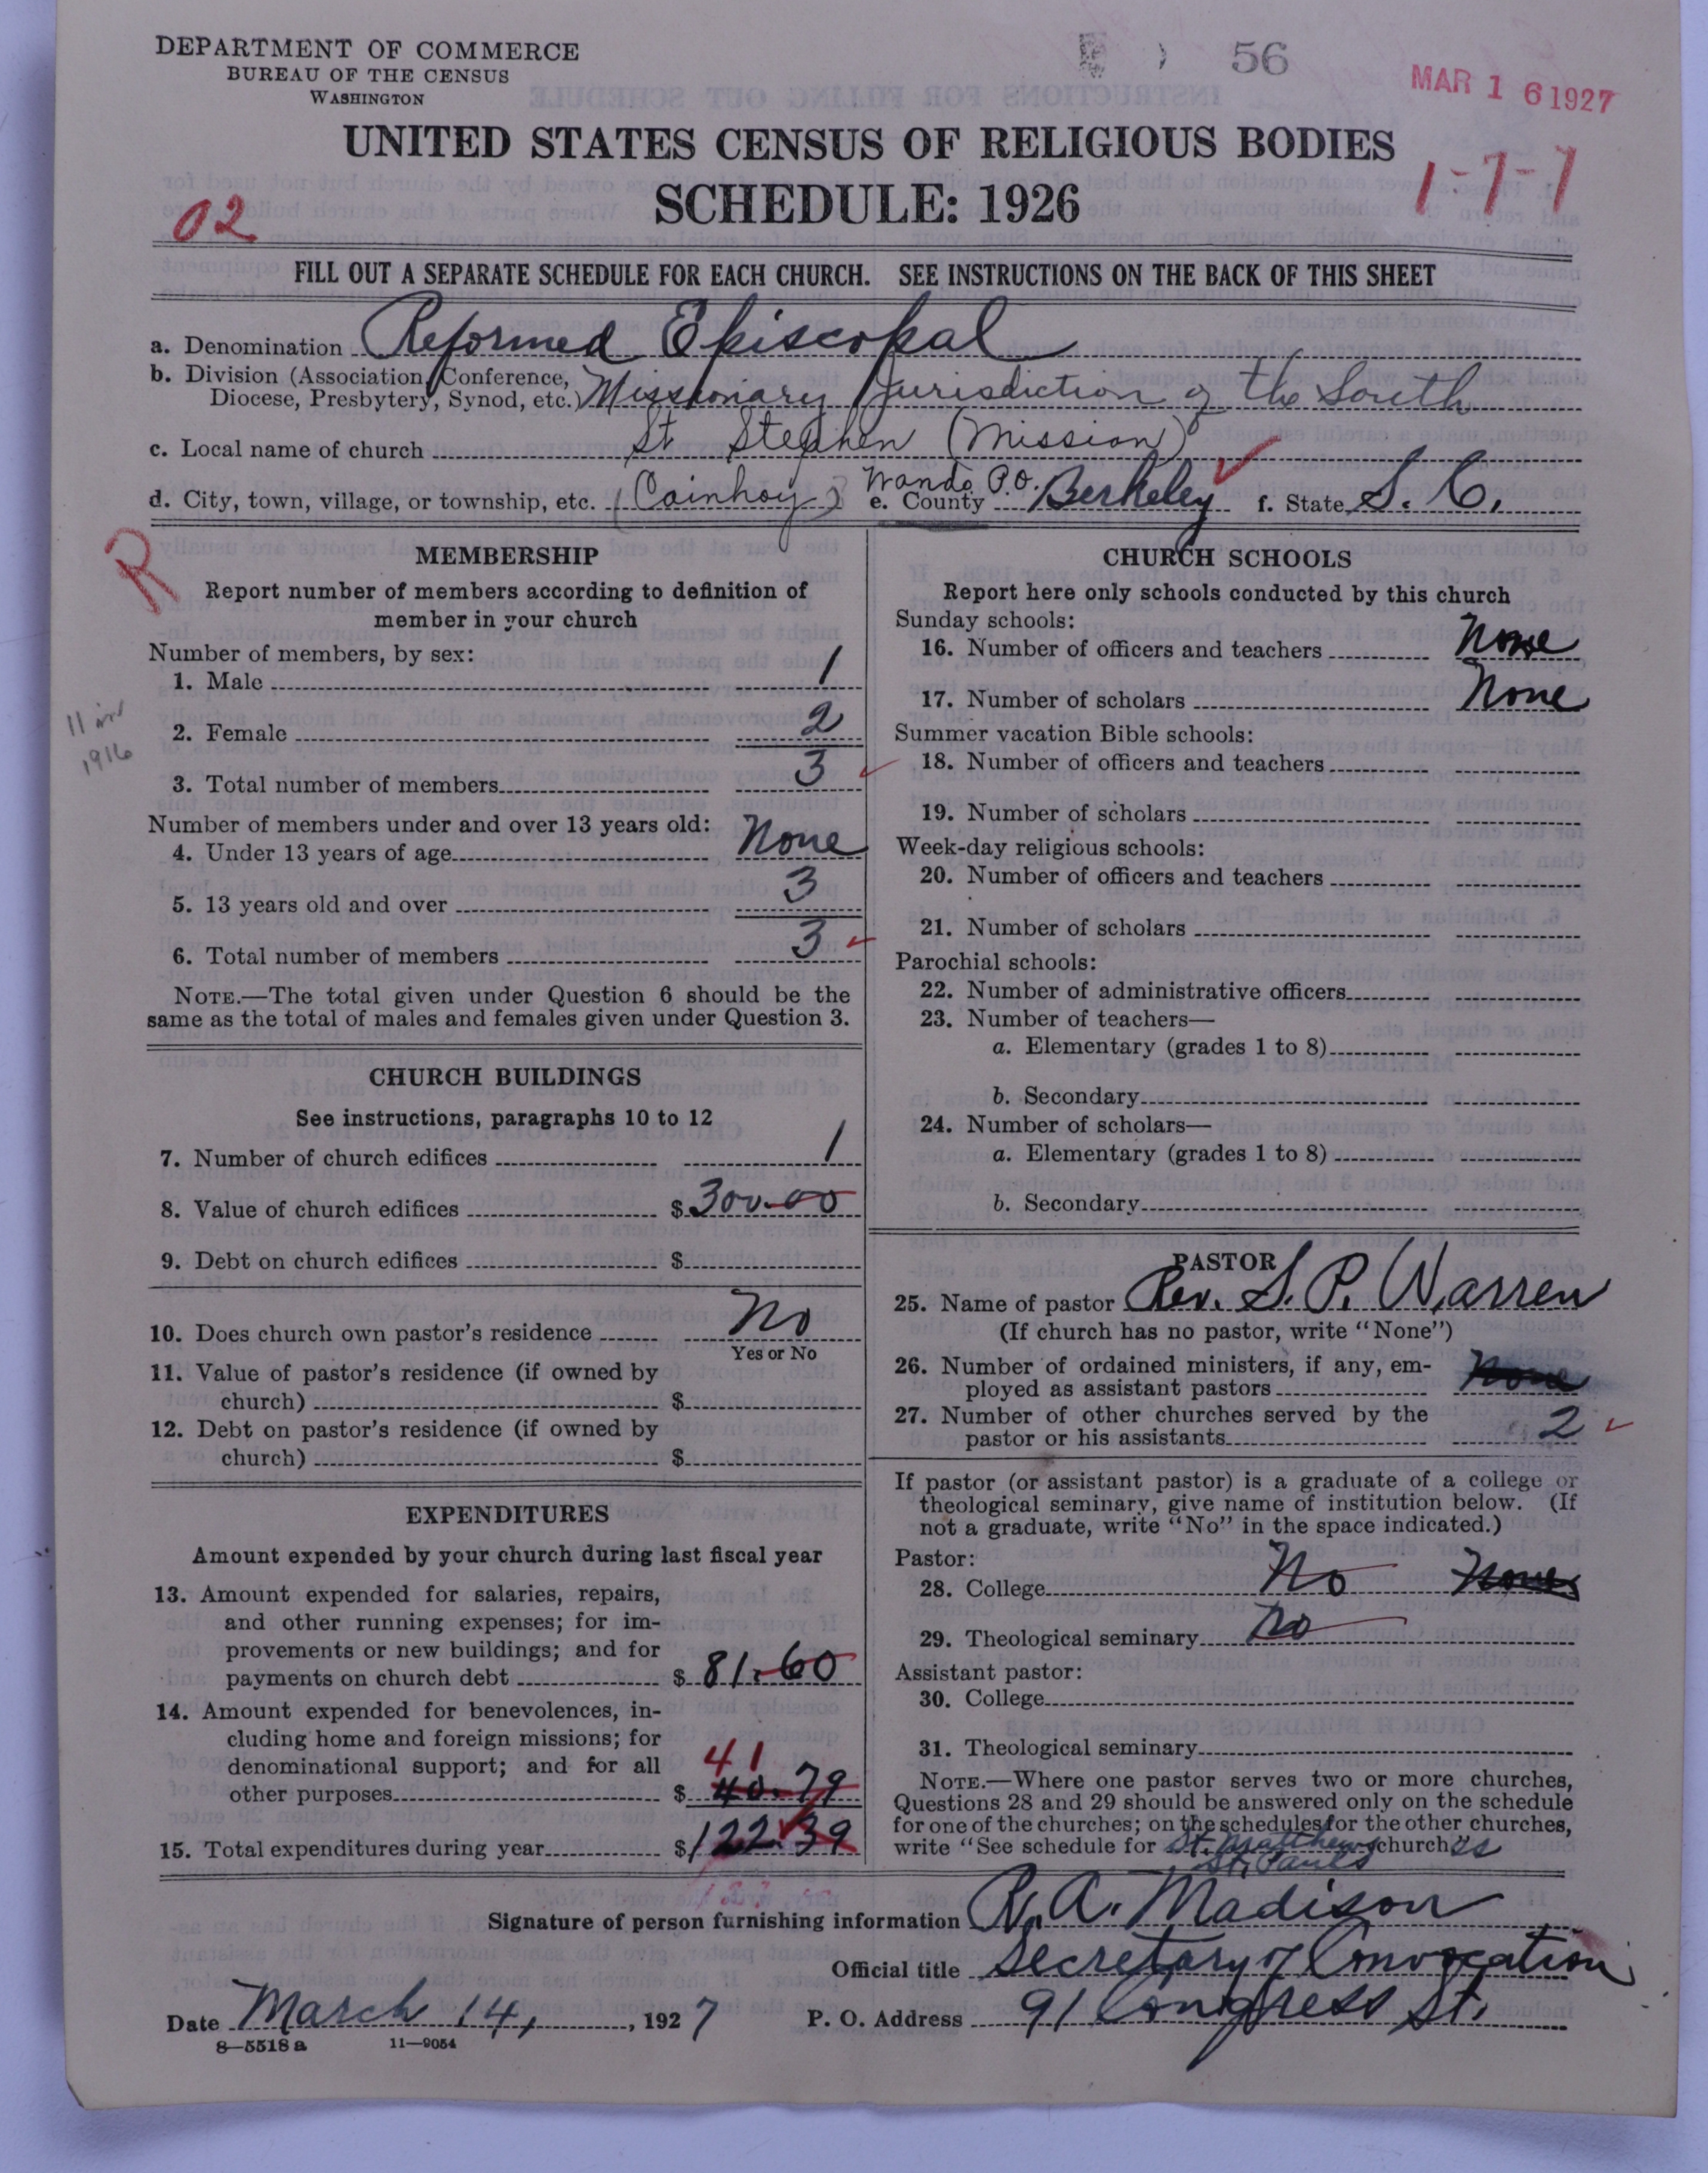 DEPARTMENT OF COMMERCE
BUREAU OF THE CENSUS
WASHINGTON
56
MAR 16 1927
UNITED STATES CENSUS OF RELIGIOUS BODIES
SCHEDULE: 1926
1-7-7
02
FILL OUT A SEPARATE SCHEDULE FOR EACH CHURCH. SEE INSTRUCTIONS ON THE BACK OF THIS SHEET
a. Denomination Reformed Episcopal
b. Division (Association, Conference, Diocese, Presbytery, Synod, etc.) Missionary Jurisdiction of the South
c. Local name of church St Stephen (Mission)
d. City, town, village, or township, etc. (Cainhoy) Wando P.O. e. County Berkeley f. State S. C.
R
MEMBERSHIP
Report number of members according to definition of
member in your church
Number of members, by sex:
1. Male 1
11 in
1916
2. Female 2
3. Total number of members 3
Number of members under and over 13 years old:
4. Under 13 years of age None
5. 13 years old and over 3
6. Total number of members 3
NOTE.—The total given under Question 6 should be the
same as the total of males and females given under Question 3.
CHURCH BUILDINGS
See instructions, paragraphs 10 to 12
7. Number of church edifices 1
8. Value of church edifices $ 300.00
9. Debt on church edifices $
10. Does church own pastor's residence No
Yes or No
11. Value of pastor's residence (if owned by
church) $
12. Debt on pastor's residence (if owned by
church) $
EXPENDITURES
Amount expended by your church during last fiscal year
13. Amount expended for salaries, repairs,
and other running expenses; for im-
provements or new buildings; and for
payments on church debt $ 81.60
14. Amount expended for benevolences, in-
cluding home and foreign missions; for
denominational support; and for all 41
other purposes $ 40.79
15. Total expenditures during year $ 122.39
CHURCH SCHOOLS
Report here only schools conducted by this church
Sunday schools:
16. Number of officers and teachers None
17. Number of scholars None
Summer vacation Bible schools:
18. Number of officers and teachers
19. Number of scholars
Week-day religious schools:
20. Number of officers and teachers
21. Number of scholars
Parochial schools:
22. Number of administrative officers
23. Number of teachers—
a. Elementary (grades 1 to 8)
b. Secondary
24. Number of scholars—
a. Elementary (grades 1 to 8)
b. Secondary
PASTOR
25. Name of pastor Rev. S. P. Warren
(If church has no pastor, write "None")
26. Number of ordained ministers, if any, em-
ployed as assistant pastors None
27. Number of other churches served by the
pastor or his assistants 2
If pastor (or assistant pastor) is a graduate of a college or
theological seminary, give name of institution below. (If
not a graduate, write "No" in the space indicated.)
Pastor:
28. College No None
29. Theological seminary No
Assistant pastor:
30. College
31. Theological seminary
NOTE.—Where one pastor serves two or more churches,
Questions 28 and 29 should be answered only on the schedule
for one of the churches; on the schedules for the other churches,
write "See schedule for St. Matthews church es
St. Pauls
Signature of person furnishing information R. A. Madison
Official title Secretary of Convocation
Date March 14, 1927 P. O. Address 91 Congress St.
8—5518 a 11—9054